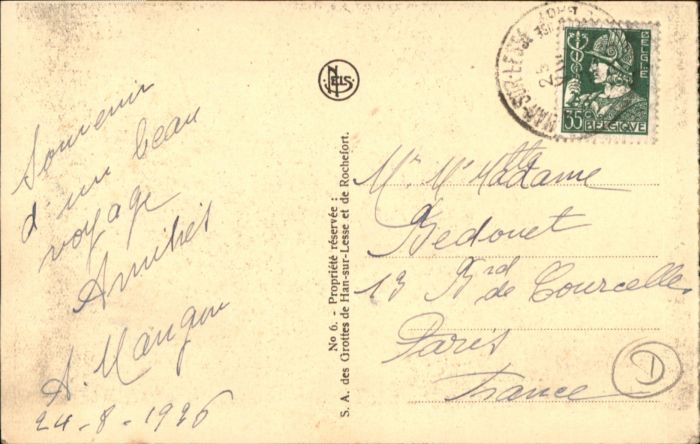 Souvenir
d'un beau
voyage
Amitiés
A. Mangou
24-8-1936
NELS
No 6. - Propriété réservée :
S. A. des Grottes de Han-sur-Lesse et de Rochefort.
HAN-SUR-LESSE
BELGIE
35
BELGIQUE
Mr Mme Madame
Bedouet
13 Brd
de Courcelles
Paris
France
D